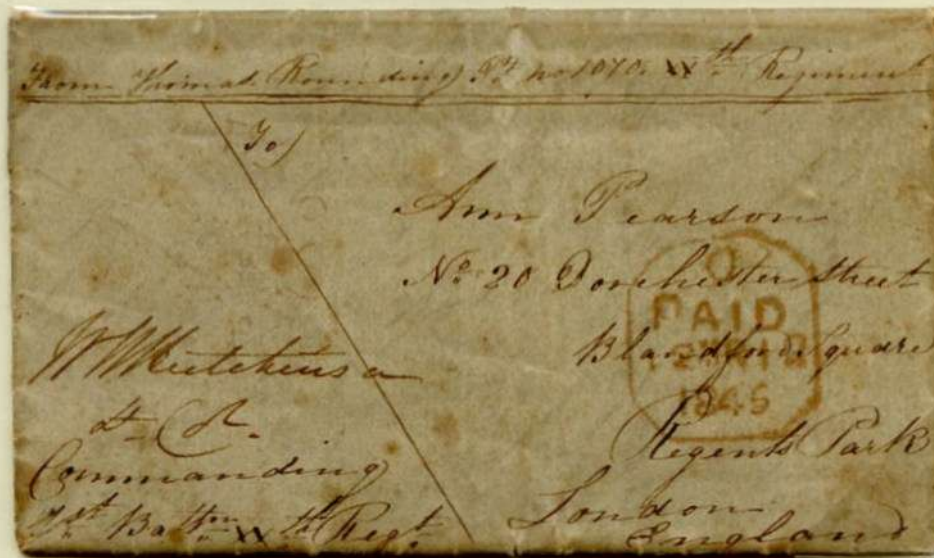 From Thomas Rounding Pt. No 1070. XXth Regiment
To)
Ann Pearson
No. 20 Dorchester Street
Blandford Square
Regents Park
London
England
PAID
1845
Lt. Col.
Commanding
1st Battn XXth Regt.